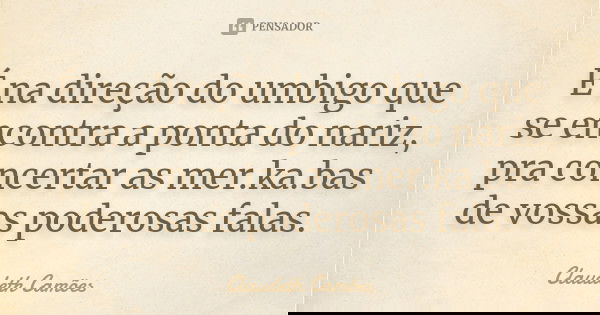 PENSADOR
É na direção do umbigo que
se encontra a ponta do nariz,
pra concertar as mer.ka.bas
de vossas poderosas falas.
Claudeth Camões